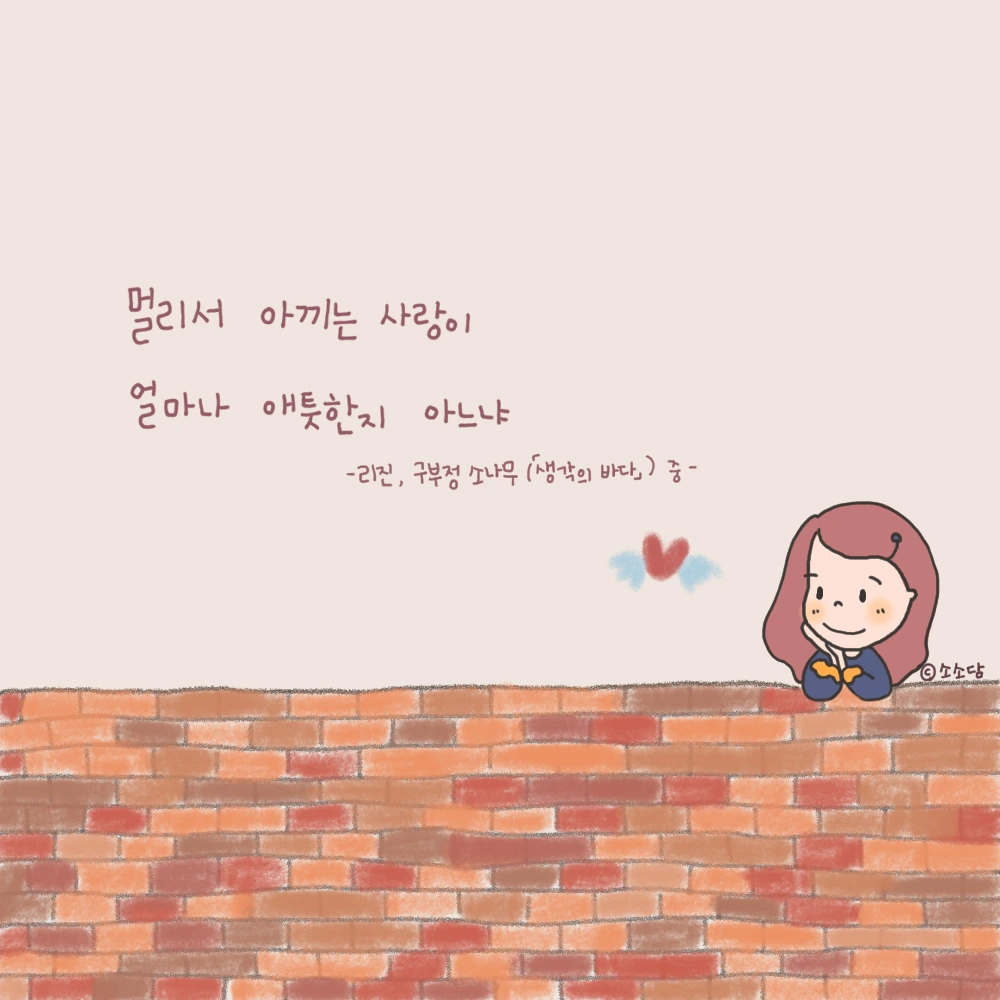 멀리서 아끼는 사랑이
얼마나 애틋한지 아느냐
-리진, 구부정 소나무 (「생각의 바다」) 중-
ⓒ소소담